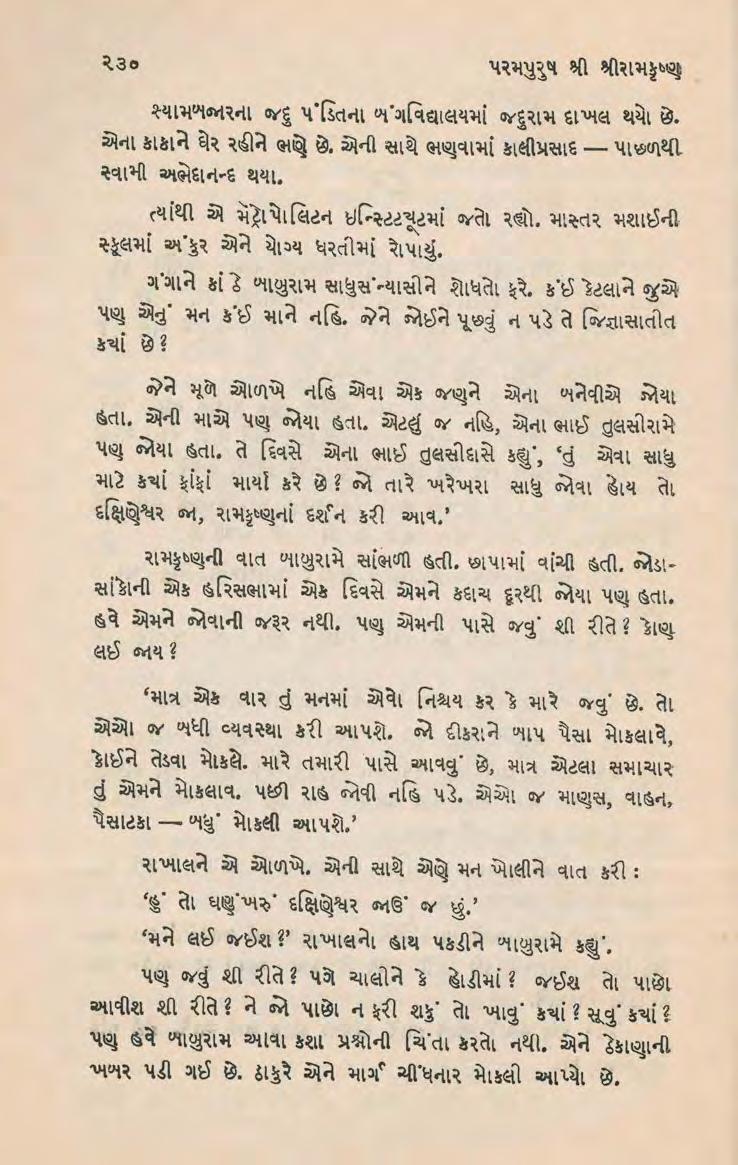 ૨૩૦ પરમપુરુષ શ્રી શ્રીરામકૃષ્ણ
શ્યામબજારના જદુ પંડિતના બંગવિદ્યાલયમાં જદુરામ દાખલ થયો છે.
એના કાકાને ઘેર રહીને ભણે છે. એની સાથે ભણવામાં કાલીપ્રસાદ — પાછળથી
સ્વામી અભેદાનન્દ થયા.
ત્યાંથી એ મેંટ્રોપોલિટન ઇન્સ્ટિટ્યૂટમાં જતો રહ્યો. માસ્તર મશાઈની
સ્કૂલમાં અંકુર એને યોગ્ય ધરતીમાં રોપાયું.
ગંગાને કાંઠે બાબુરામ સાધુસંન્યાસીને શોધતો ફરે. કંઈ કેટલાને જુએ
પણ એનું મન કંઈ માને નહિ. જેને જોઈને પૂછવું ન પડે તે જિજ્ઞાસાતીત
કયાં છે?
જેને મૂળે ઓળખે નહિ એવા એક જણને એના બનેવીએ જોયા
હતા. એની માએ પણ જોયા હતા. એટલું જ નહિ, એના ભાઈ તુલસીરામે
પણ જોયા હતા. તે દિવસે એના ભાઈ તુલસીદાસે કહ્યું, ‘તું એવા સાધુ
માટે કયાં ફાંફાં માર્યા કરે છે? જો તારે ખરેખરા સાધુ જોવા હોય તો
દક્ષિણેશ્વર જા, રામકૃષ્ણનાં દર્શન કરી આવ.’
રામકૃષ્ણની વાત બાબુરામે સાંભળી હતી. છાપામાં વાંચી હતી. જોડા-
સાંકોની એક હરિસભામાં એક દિવસે એમને કદાચ દૂરથી જોયા પણ હતા.
હવે એમને જોવાની જરૂર નથી. પણ એમની પાસે જવું શી રીતે? કોણ
લઈ જાય?
‘માત્ર એક વાર તું મનમાં એવો નિશ્ચય કર કે મારે જવું છે. તો
એઓ જ બધી વ્યવસ્થા કરી આપશે. જો દીકરાને બાપ પૈસા મોકલાવે,
કોઈને તેડવા મોકલે. મારે તમારી પાસે આવવું છે, માત્ર એટલા સમાચાર
તું એમને મોકલાવ. પછી રાહ જોવી નહિ પડે. એઓ જ માણસ, વાહન,
પૈસાટકા — બધું મોકલી આપશે.’
રાખાલને એ ઓળખે. એની સાથે એણે મન ખોલીને વાત કરી :
‘હું તો ઘણુંખરું દક્ષિણેશ્વર જાઉં જ છું.’
‘મને લઈ જઈશ?’ રાખાલનો હાથ પકડીને બાબુરામે કહ્યું.
પણ જવું શી રીતે? પગે ચાલીને કે હોડીમાં? જઈશ તો પાછો
આવીશ શી રીતે? ને જો પાછો ન ફરી શકું તો ખાવું કયાં? સૂવું કયાં?
પણ હવે બાબુરામ આવા કશા પ્રશ્નોની ચિંતા કરતો નથી. એને ઠેકાણાની
ખબર પડી ગઈ છે. ઠાકુરે એને માર્ગ ચીંધનાર મોકલી આપ્યો છે.